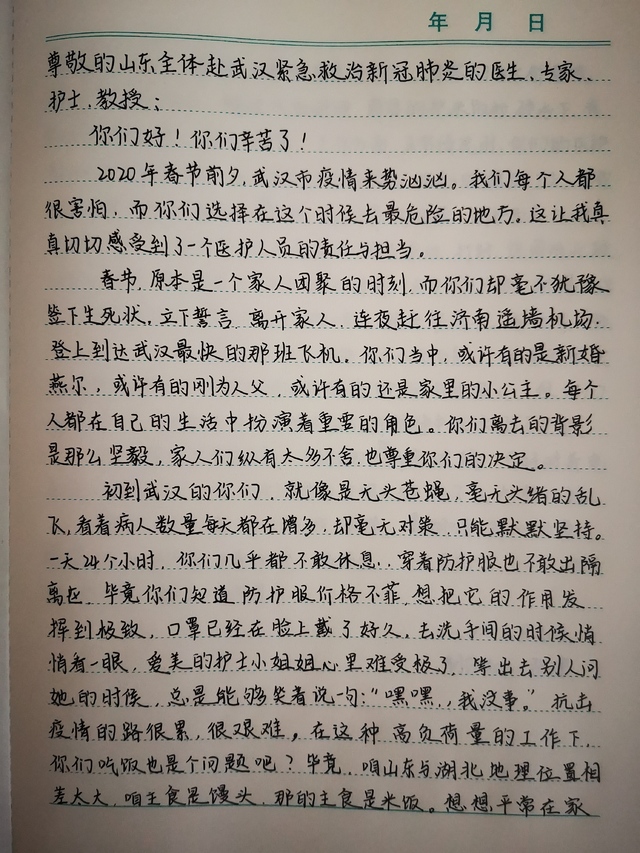 年 月 日
尊敬的山东全体赴武汉紧急救治新冠肺炎的医生、专家、
护士、教授：
你们好！你们辛苦了！
2020年春节前夕，武汉市疫情来势汹汹。我们每个人都
很害怕，而你们选择在这个时候去最危险的地方。这让我真
真切切感受到了一个医护人员的责任与担当。
春节，原本是一个家人团聚的时刻，而你们却毫不犹豫
签下生死状，立下誓言，离开家人，连夜赶往济南遥墙机场，
登上到达武汉最快的那班飞机。你们当中，或许有的是新婚
燕尔，或许有的刚为人父，或许有的还是家里的小公主。每个
人都在自己的生活中扮演着重要的角色。你们离去的背影
是那么坚毅，家人们纵有太多不舍，也尊重你们的决定。
初到武汉的你们，就像是无头苍蝇，毫无头绪的乱
飞，看着病人数量每天都在增多，却毫无对策，只能默默坚持。
一天24个小时，你们几乎都不敢休息，穿着防护服也不敢出隔
离区，毕竟你们知道防护服价格不菲，想把它的作用发
挥到极致，口罩已经在脸上戴了好久，去洗手间的时候悄
悄看一眼，爱美的护士小姐姐心里难受极了，等出去别人问
她的时候，总是能够笑着说一句：“嘿嘿，我没事。”抗击
疫情的路很累，很艰难，在这种高负荷量的工作下，
你们吃饭也是个问题吧？毕竟，咱山东与湖北地理位置相
差太大，咱主食是馒头，那的主食是米饭。想想平常在家